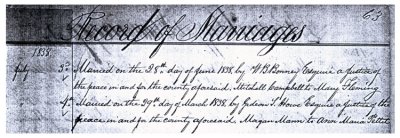 63
Record of Marriages
1838.
July 3d Married on the 28th day of June 1838, by W. B. Bonney Esquire a justice of
the peace in and for the county aforesaid, Mitchell Campbell to Mary Fleming
4th Married on the 29th day of March 1838, by Judson S. House Esquire a justice of the
peace in and for the county aforesaid, Magar Mann to Ann Maria Pettit